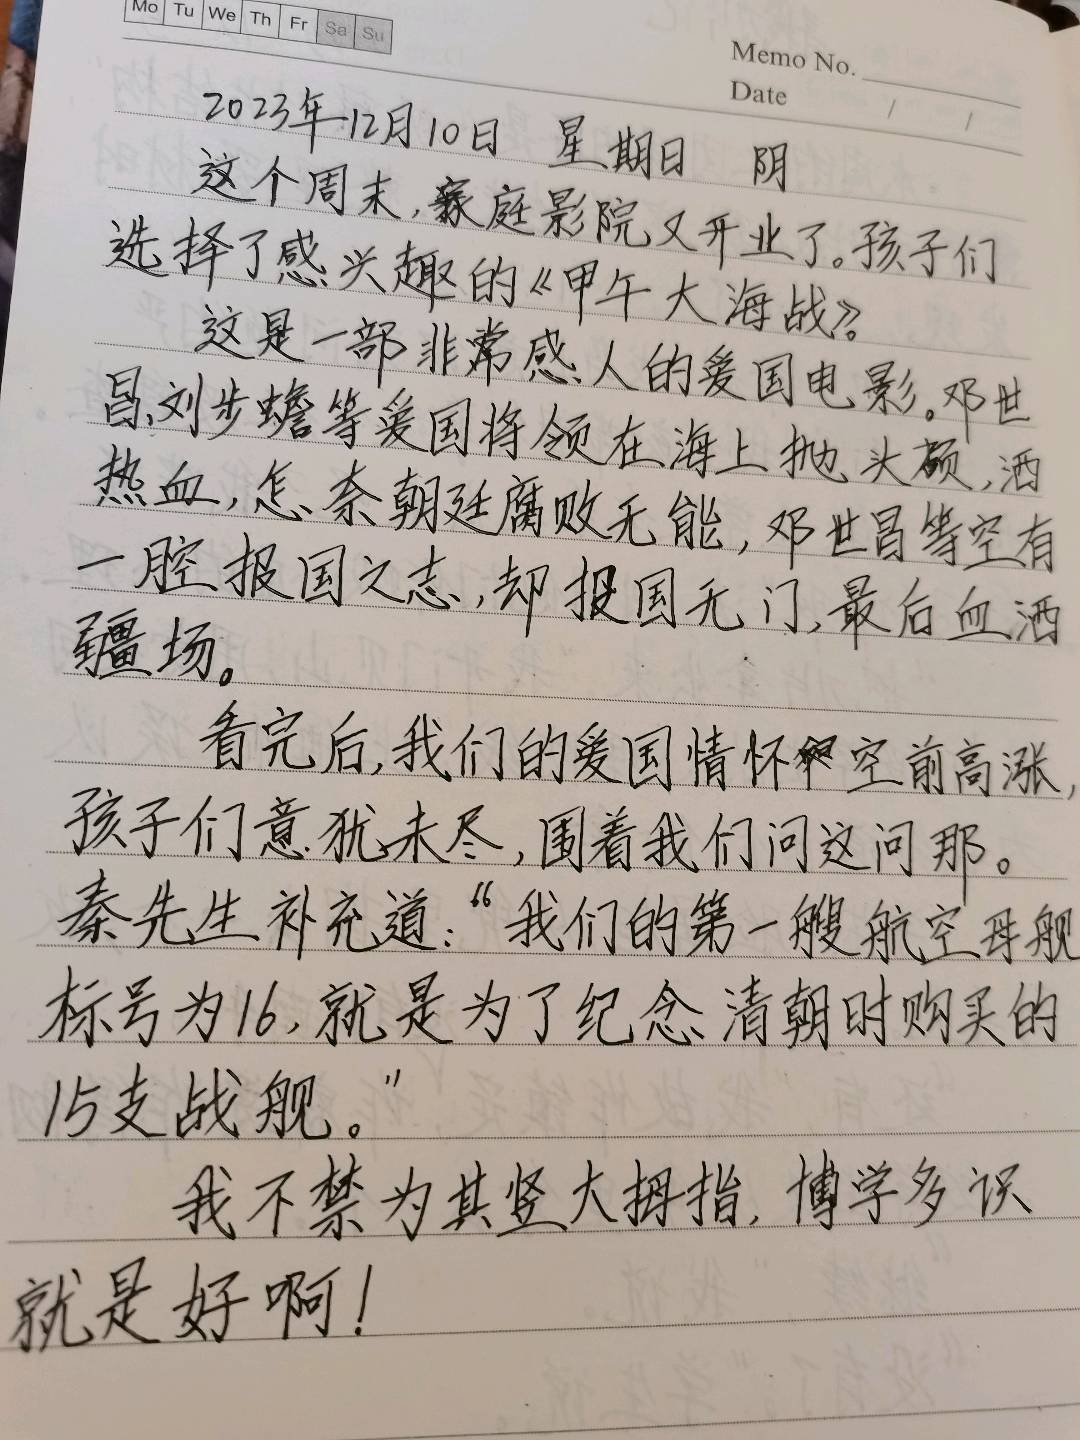 Mo Tu We Th Fr Sa Su
Memo No.
Date / /
2023年12月10日 星期日 阴
这个周末,家庭影院又开业了。孩子们
选择了感兴趣的《甲午大海战》。
这是一部非常感人的爱国电影。邓世
昌、刘步蟾等爱国将领在海上抛头颅,洒
热血,怎奈朝廷腐败无能,邓世昌等空有
一腔报国之志,却报国无门,最后血洒
疆场。
看完后,我们的爱国情怀空前高涨,
孩子们意犹未尽,围着我们问这问那。
秦先生补充道:“我们的第一艘航空母舰
标号为16,就是为了纪念清朝时购买的
15支战舰。”
我不禁为其竖大拇指,博学多识
就是好啊!